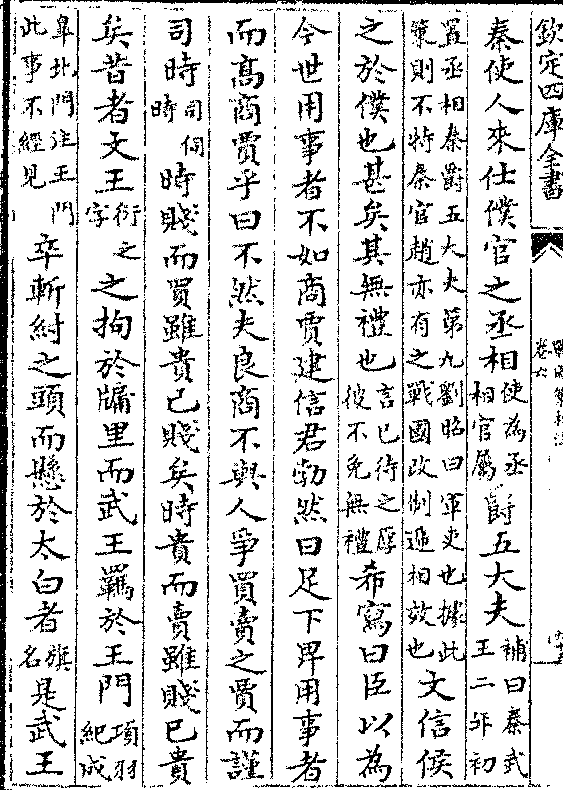 欽定四庫全書
卷六
秦使人來仕僕官之丞相使為丞相官屬爵五大夫補曰秦武王二年初
置丞相秦爵五大夫第九劉昭曰軍吏也據此策則不特秦官趙亦有之戰國改制遞相效也文信侯
之於僕也甚矣其無禮也言已待之厚彼不免無禮希寫曰臣以為
今世用事者不如商賈建信君勃然曰足下卑用事者
而高商賈乎曰不然夫良商不與人爭買賣之賈而謹
司時司伺時時賤而買雖貴已賤矣時貴而賣雖賤已貴
矣昔者文王衍之字之拘於牖里而武王羈於王門項羽紀成
皐北門注王門此事不經見卒斬紂之頭而懸於太白者旗名是武王